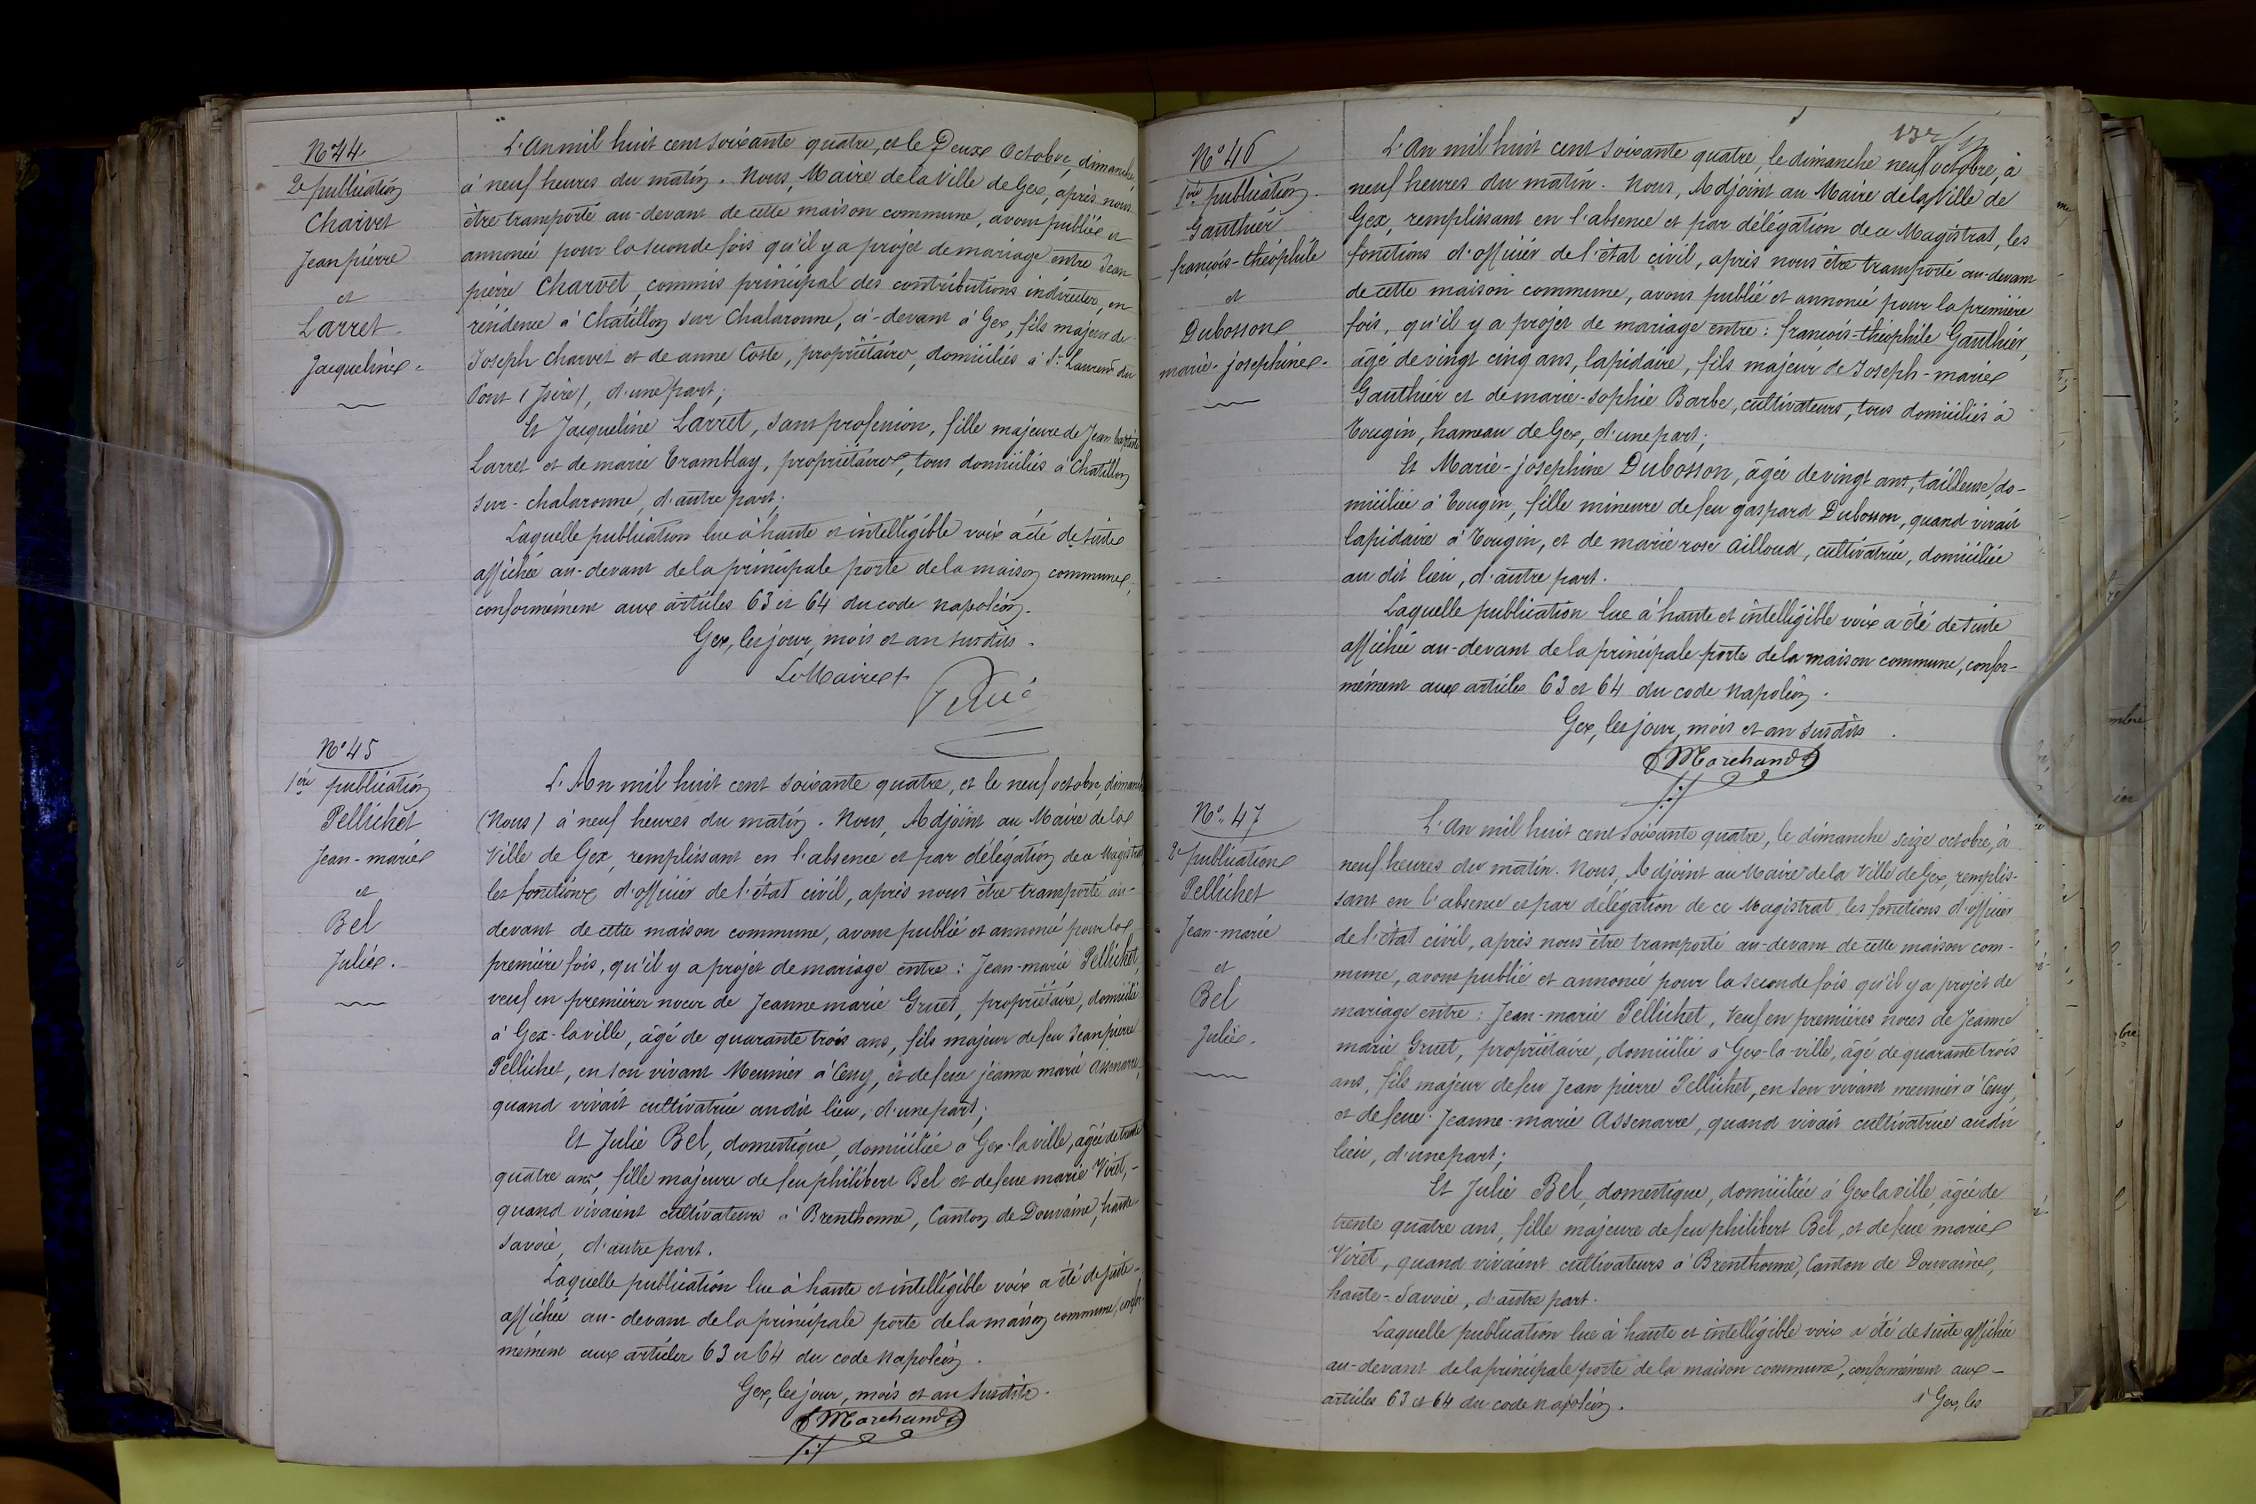 N°44.
2e publication
Charvet
Jean pierre
et
Larret
Jacqueline
L'An mil huit cent soixante quatre, et le Deux Octobre, dimanche,
à neuf heures du matin. Nous, Maire de la Ville de Gex, après nous
être transporté au-devant de cette maison commune, avons publié et
annoncé pour la seconde fois qu'il y a projet de mariage entre Jean
pierre Charvet, commis principal des contributions indirectes, en
résidence à Chatillon sur Chalaronne, ci-devant à Gex, fils majeur de
Joseph Charvet et de anne Coste, propriétaires, domiciliés à St. Laurent du
Pont (Isère), d'une part;
Et Jacqueline Larret, sans profession, fille majeure de Jean baptiste
Larret et de marie Tramblay, propriétaires, tous domiciliés à Chatillon
sur-chalaronne, d'autre part;
Laquelle publication lue à haute et intelligible voix a été de suite
affichée au-devant de la principale porte de la maison commune,
conformément aux articles 63 et 64 du code napoléon.
Gex, les jour, mois et an susdits.
Le Maire
N°45
1ère publication
Pellichet
Jean-marie
et
Bel
Julie.
L'An mil huit cent soixante quatre, et le neuf octobre, dimanche
(Nous) à neuf heures du matin. Nous, Adjoint au Maire de la
Ville de Gex, remplissant en l'absence et par délégation de ce Magistrat
les fonctions d'officier de l'état civil, après nous être transporté au-
devant de cette maison commune, avons publié et annoncé pour la
première fois, qu'il y a projet de mariage entre: Jean-marie Pellichet,
veuf en premières noces de Jeanne marie Gruet, propriétaire, domicilié
à Gex-la ville, âgé de quarante trois ans, fils majeur de feu Jean pierre
Pellichet, en son vivant Meunier à Cessy, et de feue jeanne marie Assenarre,
quand vivait cultivatrice au dit lieu, d'une part;
Et Julie Bel, domestique, domiciliée à Gex-la ville, âgée de trente
quatre ans, fille majeure de feu philibert Bel et de feue marie Viret,-
quand vivaient cultivateurs à Brenthonne, Canton de Douvaine, haute
Savoie, d'autre part.
Laquelle publication lue à haute et intelligible voix a été de suite-
affichée au-devant de la principale porte de la maison commune, confor-
mément aux articles 63 et 64 du code napoléon.
Gex, les jour, mois et an susdits.
Marchand
N°46
1ère publication.
Gauthier
françois-théophile
et
Dubosson
marie-josephine-
L'An mil huit cent soixante quatre, le dimanche neuf octobre, à
neuf heures du matin. Nous, Adjoint au Maire de la Ville de
Gex, remplissant en l'absence et par délégation de ce Magistrat, les
fonctions d'officier de l'état civil, après nous être transporté au-devant
de cette maison commune, avons publié et annoncé pour la première
fois, qu'il y a projet de mariage entre: françois-théophile Gauthier,
âgé de vingt cinq ans, lapidaire, fils majeur de Joseph-marie
Gauthier et de marie-sophie Barbe, cultivateurs, tous domiciliés à
Tougin, hameau de Gex, d'une part;
Et Marie-josephine Dubosson, âgée de vingt ans, tailleuse, do-
miciliée à Tougin, fille mineure de feu gaspard Dubosson, quand vivait
lapidaire à Tougin, et de marie rose Ailloud, cultivatrice, domiciliée
au dit lieu, d'autre part.
Laquelle publication lue à haute et intelligible voix a été de suite
affichée au-devant de la principale porte de la maison commune, confor-
mément aux articles 63 et 64 du code napoléon.
Gex, les jour, mois et an susdits.
Marchand
N°.47
2e publication
Pellichet
Jean-marie
et
Bel
Julie.
L'An mil huit cent soixante quatre, le dimanche seize octobre, à
neuf heures du matin. Nous, Adjoint au Maire de la Ville de Gex, remplis-
sant en l'absence et par délégation de ce Magistrat, les fonctions d'officier
de l'état civil, après nous être transporté au-devant de cette maison com-
mune, avons publié et annoncé pour la seconde fois qu'il y a projet de
mariage entre: Jean-marie Pellichet, Veuf en premières noces de Jeanne
marie Gruet, propriétaire, domicilié à Gex-la ville, âgé de quarante trois
ans, fils majeur de feu Jean pierre Pellichet, en son vivant meunier à Cessy,
et de feue Jeanne-marie Assenarre, quand vivait cultivatrice au dit
lieu, d'une part;
Et Julie Bel, domestique, domiciliée à Gex la ville, âgée de
trente quatre ans, fille majeure de feu philibert Bel, et de feue marie
Viret, quand vivaient cultivateurs à Brenthonne, Canton de Douvaine,
haute-Savoie, d'autre part.
Laquelle publication lue à haute et intelligible voix a été de suite affichée
au-devant de la principale porte de la maison commune, conformément aux-
articles 63 et 64 du code napoléon.
Gex, les